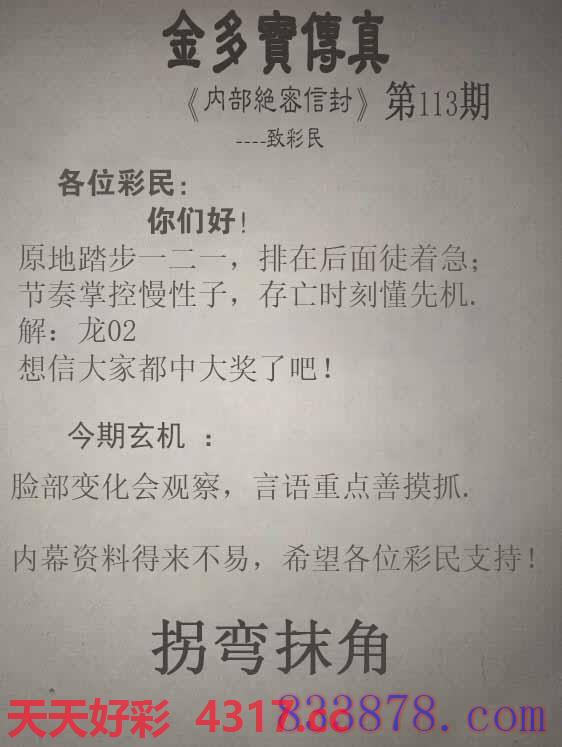 金多寶傳真
《内部絶密信封》第113期
----致彩民
各位彩民:
你们好!
原地踏步一二一，排在后面徒着急;
节奏掌控慢性子，存亡时刻懂先机.
解：龙02
想信大家都中大奖了吧!
今期玄机 :
脸部变化会观察，言语重点善摸抓.
内幕资料得来不易，希望各位彩民支持!
拐弯抹角
天天好彩 4317.cc
833878.com